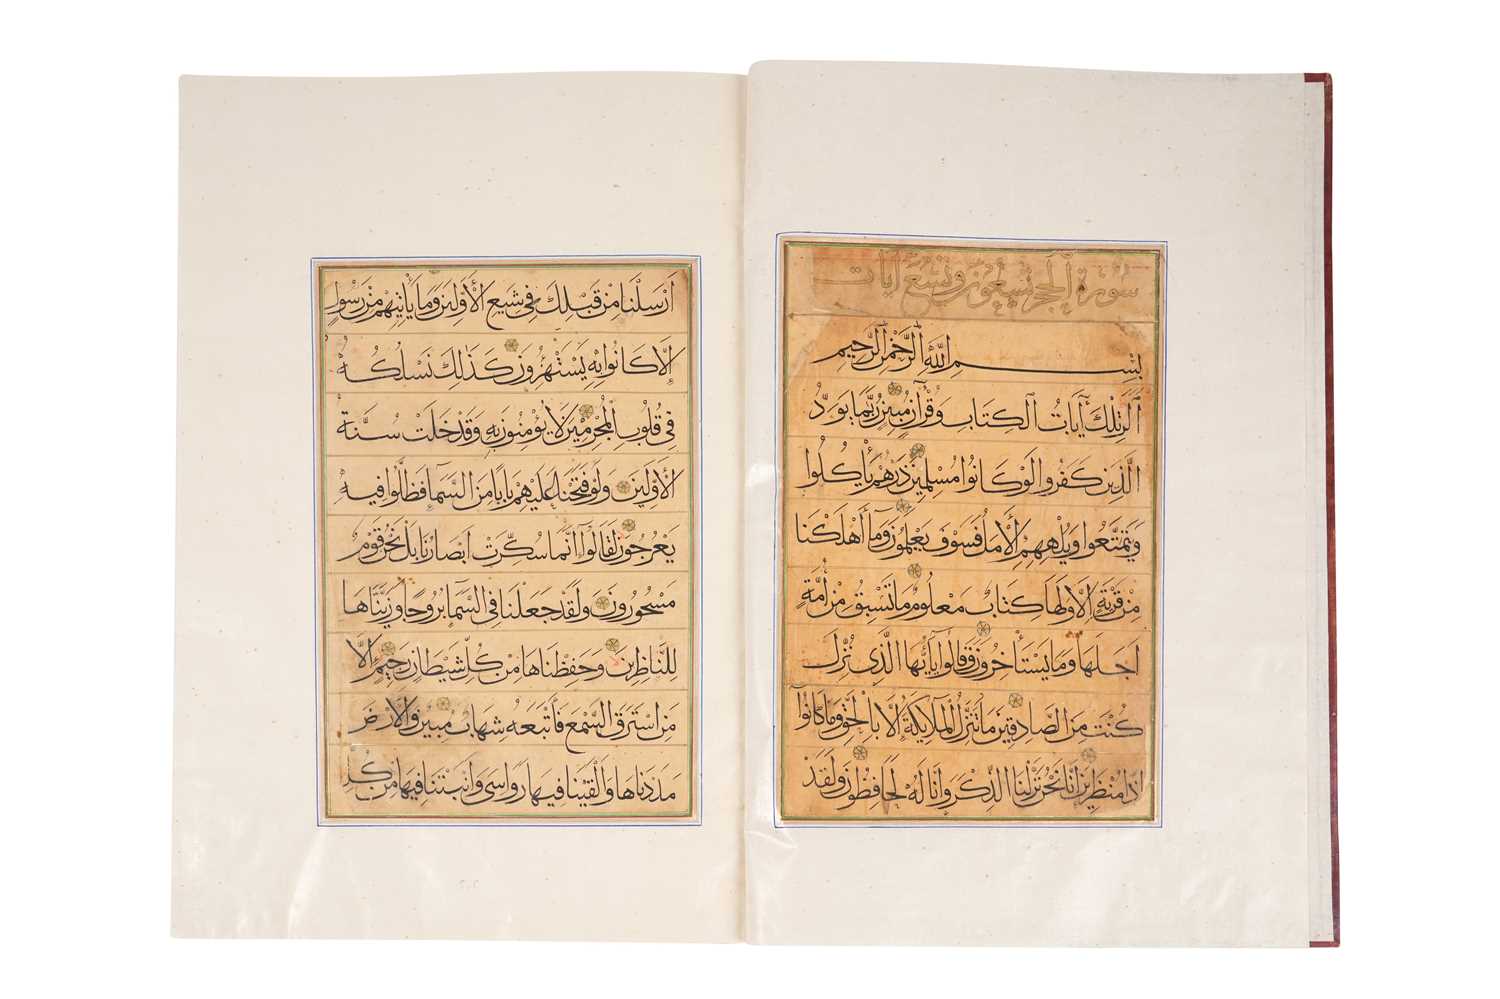 سورة الحجر تسعون وتسع آيات
بسم الله الرحمن الرحيم
الر تلك آيات الكتاب وقرآن مبين ربما يود
الذين كفروا لو كانوا مسلمين ذرهم يأكلوا
ويتمتعوا ويلههم الأمل فسوف يعلمون وما أهلكنا
من قرية إلا ولها كتاب معلوم ما تسبق من أمة
أجلها وما يستأخرون وقالوا يا أيها الذي نزل
كنت من الصادقين ما تنزل الملائكة إلا بالحق وما كانوا
إذا منظرين إنا نحن نزلنا الذكر وإنا له لحافظون ولقد
أرسلنا من قبلك في شيع الأولين وما يأتيهم من رسول
إلا كانوا به يستهزؤن كذلك نسلكه
في قلوب المجرمين لا يؤمنون به وقد خلت سنة
الأولين ولو فتحنا عليهم بابا من السما فظلوا فيه
يعرجون لقالوا إنما سكرت أبصارنا بل نحن قوم
مسحورون ولقد جعلنا في السما بروجا وزيناها
للناظرين وحفظناها من كل شيطان رجيم إلا
من استرق السمع فأتبعه شهاب مبين والأرض
مددناها وألقينا فيها رواسي وأنبتنا فيها من كل